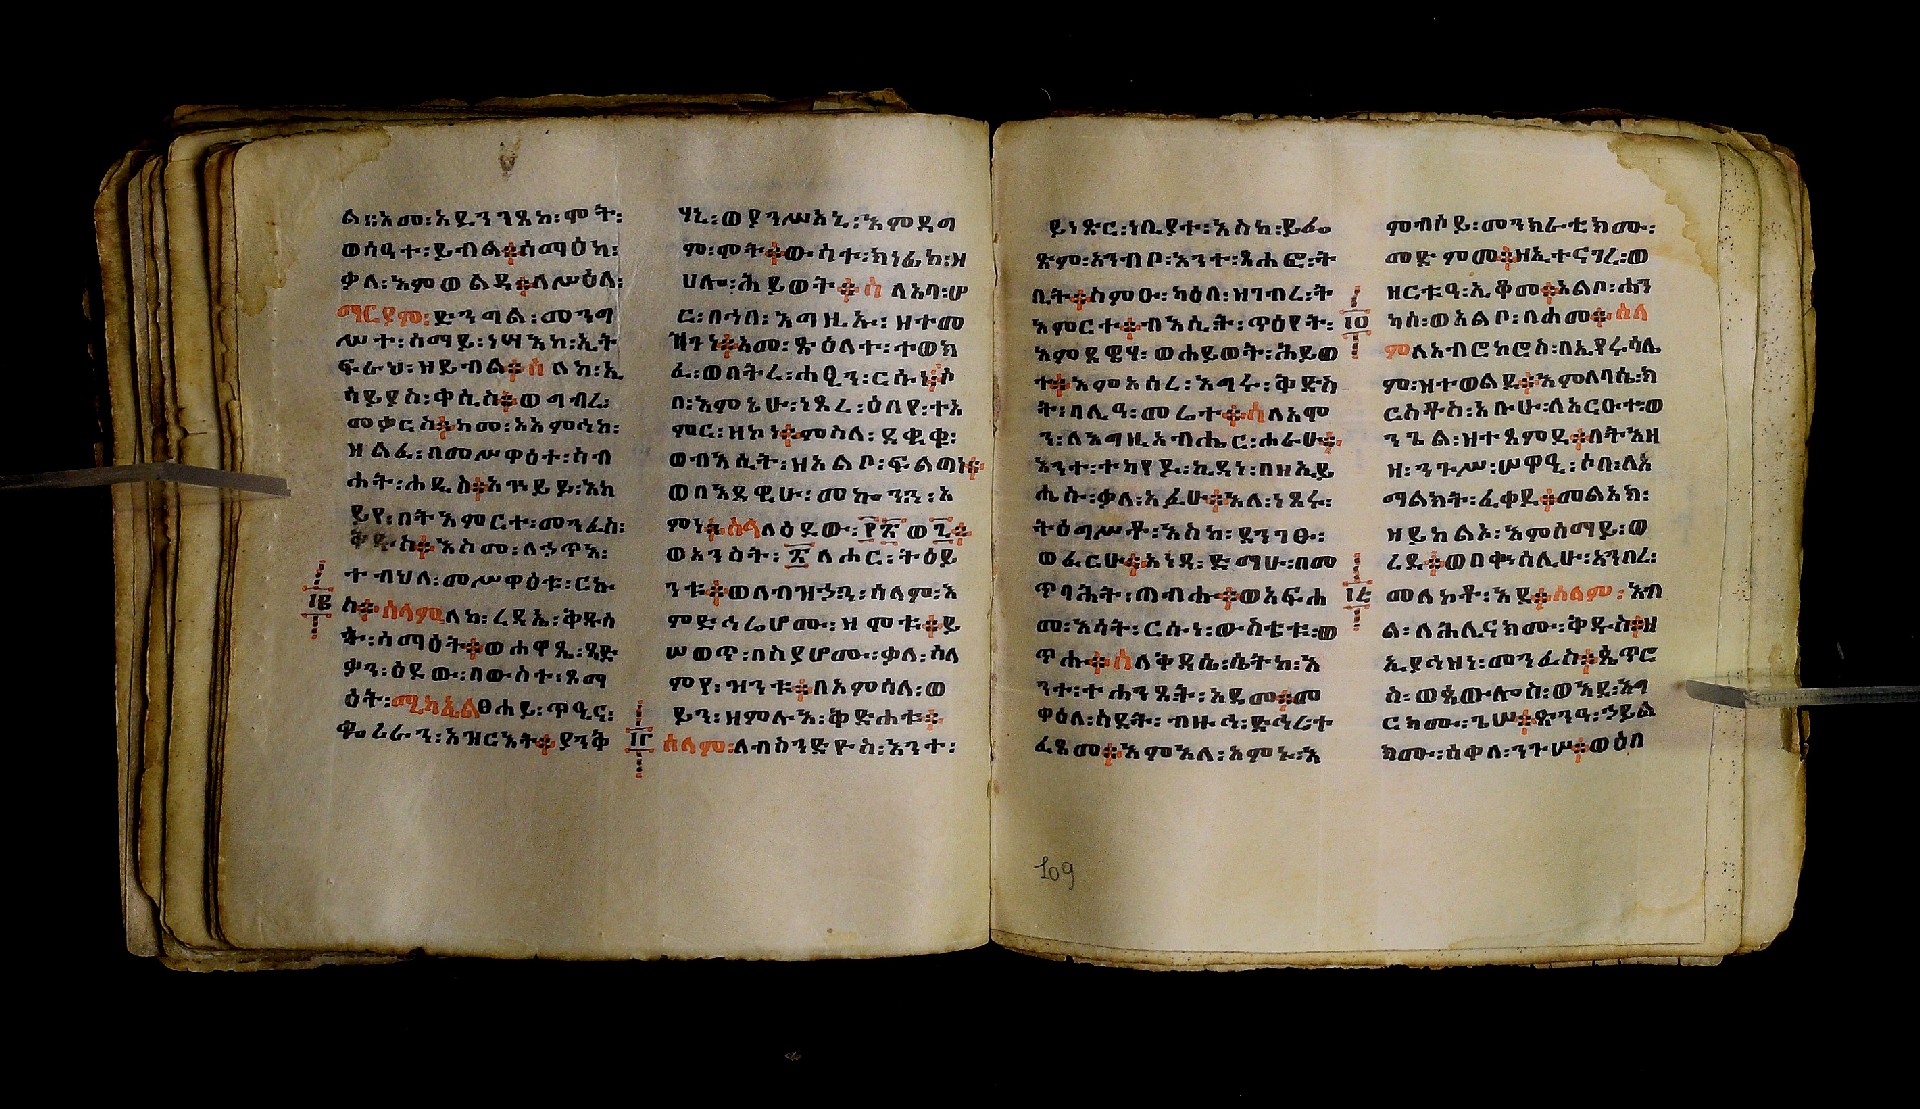 ል፡፡አመ፡አፂንንጼከ፡ሞት፡
ወሰዓተ፡ይብል፨ሰማዕከ፡
ቃለ፡እምወልዳ፨ለሥዕለ፡
ማርያም፡ድንግል፡መንግ
ሥተ፡ሰማይ፡ነሣእከ፡ኢት
ፍራህ፡ዘይብል፨ሰለከ፡ኢ
ሳይያስ፡ቀሲስ፨ወግብረ፡
መቃርስ፨ከመ፡አእምሳከ፡
ዘልፈ፡በመሥዋዕተ፡ስብ
ሐት፡ሐዲስ፨እንይይ፡አከ
ይየ፡በትእምርተ፡መንፈስ፡
ቅዱስ፨እስመ፡ለኃጥአ፡
ተብህለ፡መሥዋዕቱ፡ርኩ
፲፪
ስ፨ሰላምለከ፡ረዳኤ፡ቅዱሳ
ት፡ሰማዕት፨ወሐዋጼ፡ጻድ
ቃን፡ዕደው፡በውስተ፡ጾማ
ዕት፡ሚካኤልፀሐይ፡ጥዒና፡
ቈራራን፡አዝርእት፨ያንቅ
ሃኒ፡ወያንሥአኒ፡እምደግ
ም፡ሞት፨ውስተ፡ክነፊከ፡ዘ
ሀሎ፡ሕይወት፨ሰለአባ፡ሠ
ር፡በኀበ፡እግዚኡ፡ዘተመ
ዝገነ፨አመ፡ጽዕለተ፡ተወክ
ፈ፡ወበትረ፡ሐዊን፡ርሱነ፨ሶ
በ፡እምኔሁ፡ነጸረ፡ዕበየ፡ተአ
ምር፡ዘኮነ፨ምስለ፡ደቂቁ፡
ወብእሲት፡ዘአልቦ፡ፍልጣነ፨
ወበእደዊሁ፡መኰንን፡አ
ምነ፨ሰላለዕደው፡፻፳ወ፫፨
ወአንስት፡፳ለሐር፡ትዕይ
ንቱ፨ወለብዝኃን፡ሰለም፡እ
ምድኅሬሆሙ፡ዘሞቱ፨ይ
ሠወጥ፡በስያሆሙ፡ቃለ፡ሰላ
ምየ፡ዝንቱ፨በአምሳለ፡ወ
ይን፡ዘምሉእ፡ቅድሐቱ፨
፲፫
ሰላም፡ለብስንድዮስ፡አንተ፡
ይነጽር፡ነቢያተ፡እስከ፡ይፌ
ጽም፡አንብቦ፡አንተ፡ጸሐፎ፡ት
ቢት፨ስምዑ፡ካዕበ፡ዘገብረ፡ት
፲፬
እምርተ፨ብእሲት፡ጥዕየት፡
እምደዌሃ፡ወሐይወት፡ሕይወ
ተ፨እምአሰረ፡እግሩ፡ቅድስ
ት፡በሊዓ፡መሬተ፨ሰለአሞ
ን፡ለእግዚአብሔር፡ሐራሁ፨
አንተ፡ተካየደ፡ኪዳነ፡በዘኢይ
ሔሱ፡ቃለ፡አፈሁ፨እለ፡ነጸሩ፡
ትዕግሥቶ፡እስከ፡ደንገፁ፡
ወፈርሁ፨አነዳ፡ድማሁ፡በመ
ጥባሕት፡ጠብሐ፨ወአፍሐ
መ፡እሳት፡ርሱነ፡ውስቴቱ፡ወ
ጥሐ፨ሰለቅዳሴ፡ሴትከ፡እ
ንተ፡ተሐንጸት፡አደመ፨መ
ዋዕለ፡ስደት፡ብዙኅ፡ድኅሪተ
ፈጸመ፨እምእለ፡አምኑ፡እ
ምብሶይ፡መንክራቲክሙ፡
መድምመ፨ዘኢተናገረ፡ወ
ዘርቱዓ፡ኢቆመ፨አልቦ፡ሐን
ካስ፡ወአልቦ፡በሐመ፨ሰላ
ምለአብሮኮሮስ፡በኢየሩሳሌ
ም፡ዝተወልደ፨እምለባሴ፡ክ
ርስቶስ፡አቡሁ፡ለአርዑተ፡ወ
ንጌል፡ዝተጸምደ፨በትእዘ
ዘ፡ንጉሥ፡ሠዋዒ፡ሶበ፡ለአ
ማልክት፡ፈቀደ፨መልአክ፡
ዘይከልኦ፡እምሰማይ፡ወ
ረደ፨ወበቅንሰሊሁ፡አንበረ፡
፲፭
መለኮቶ፡እደ፨ሰለም፡እብ
ል፡ለሕሊናክሙ፡ቅዱስ፨ዘ
ኢያኅዝነ፡መንፈስ፨ጴጥሮ
ስ፡ወጳውሎስ፡ወእደ፡እግ
ርክሙ፡ጌሠ፨ድንዓ፡ኃይል
ክሙ፡ሰቀለ፡ንጉሠ፨ወዕበ
109